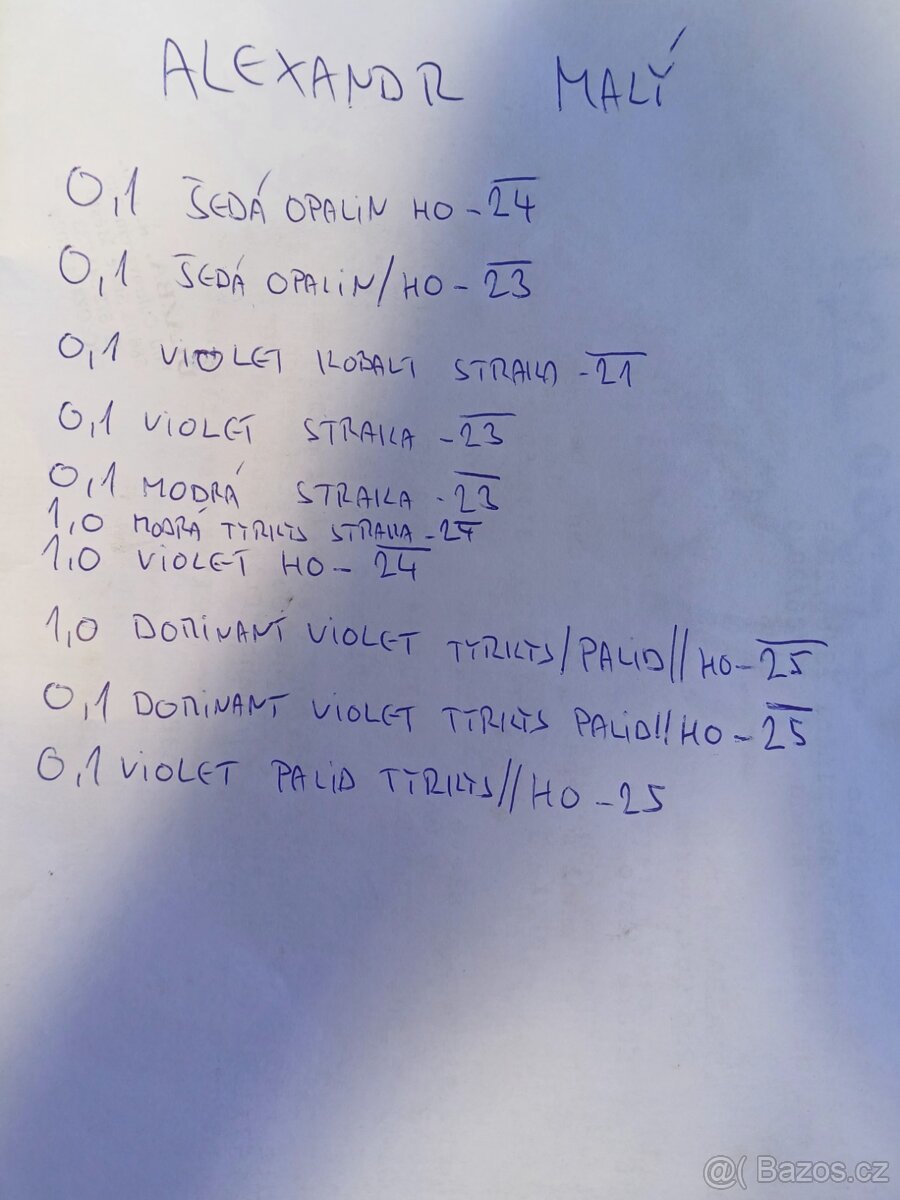 ALEXANDR MALÝ
0,1 ŠEDÁ OPALIN HO - 24
0,1 ŠEDÁ OPALIN/HO - 23
0,1 VIOLET KOBALT STRAKA - 21
0,1 VIOLET STRAKA - 23
0,1 MODRÁ STRAKA - 23
1,0 MODRÁ TYRKYS STRAKA - 24
1,0 VIOLET HO - 24
1,0 DOMINANT VIOLET TYRKYS/PALID//HO - 25
0,1 DOMINANT VIOLET TYRKYS PALID//HO - 25
0,1 VIOLET PALID TYRKYS//HO - 25
@( Bazos.cz